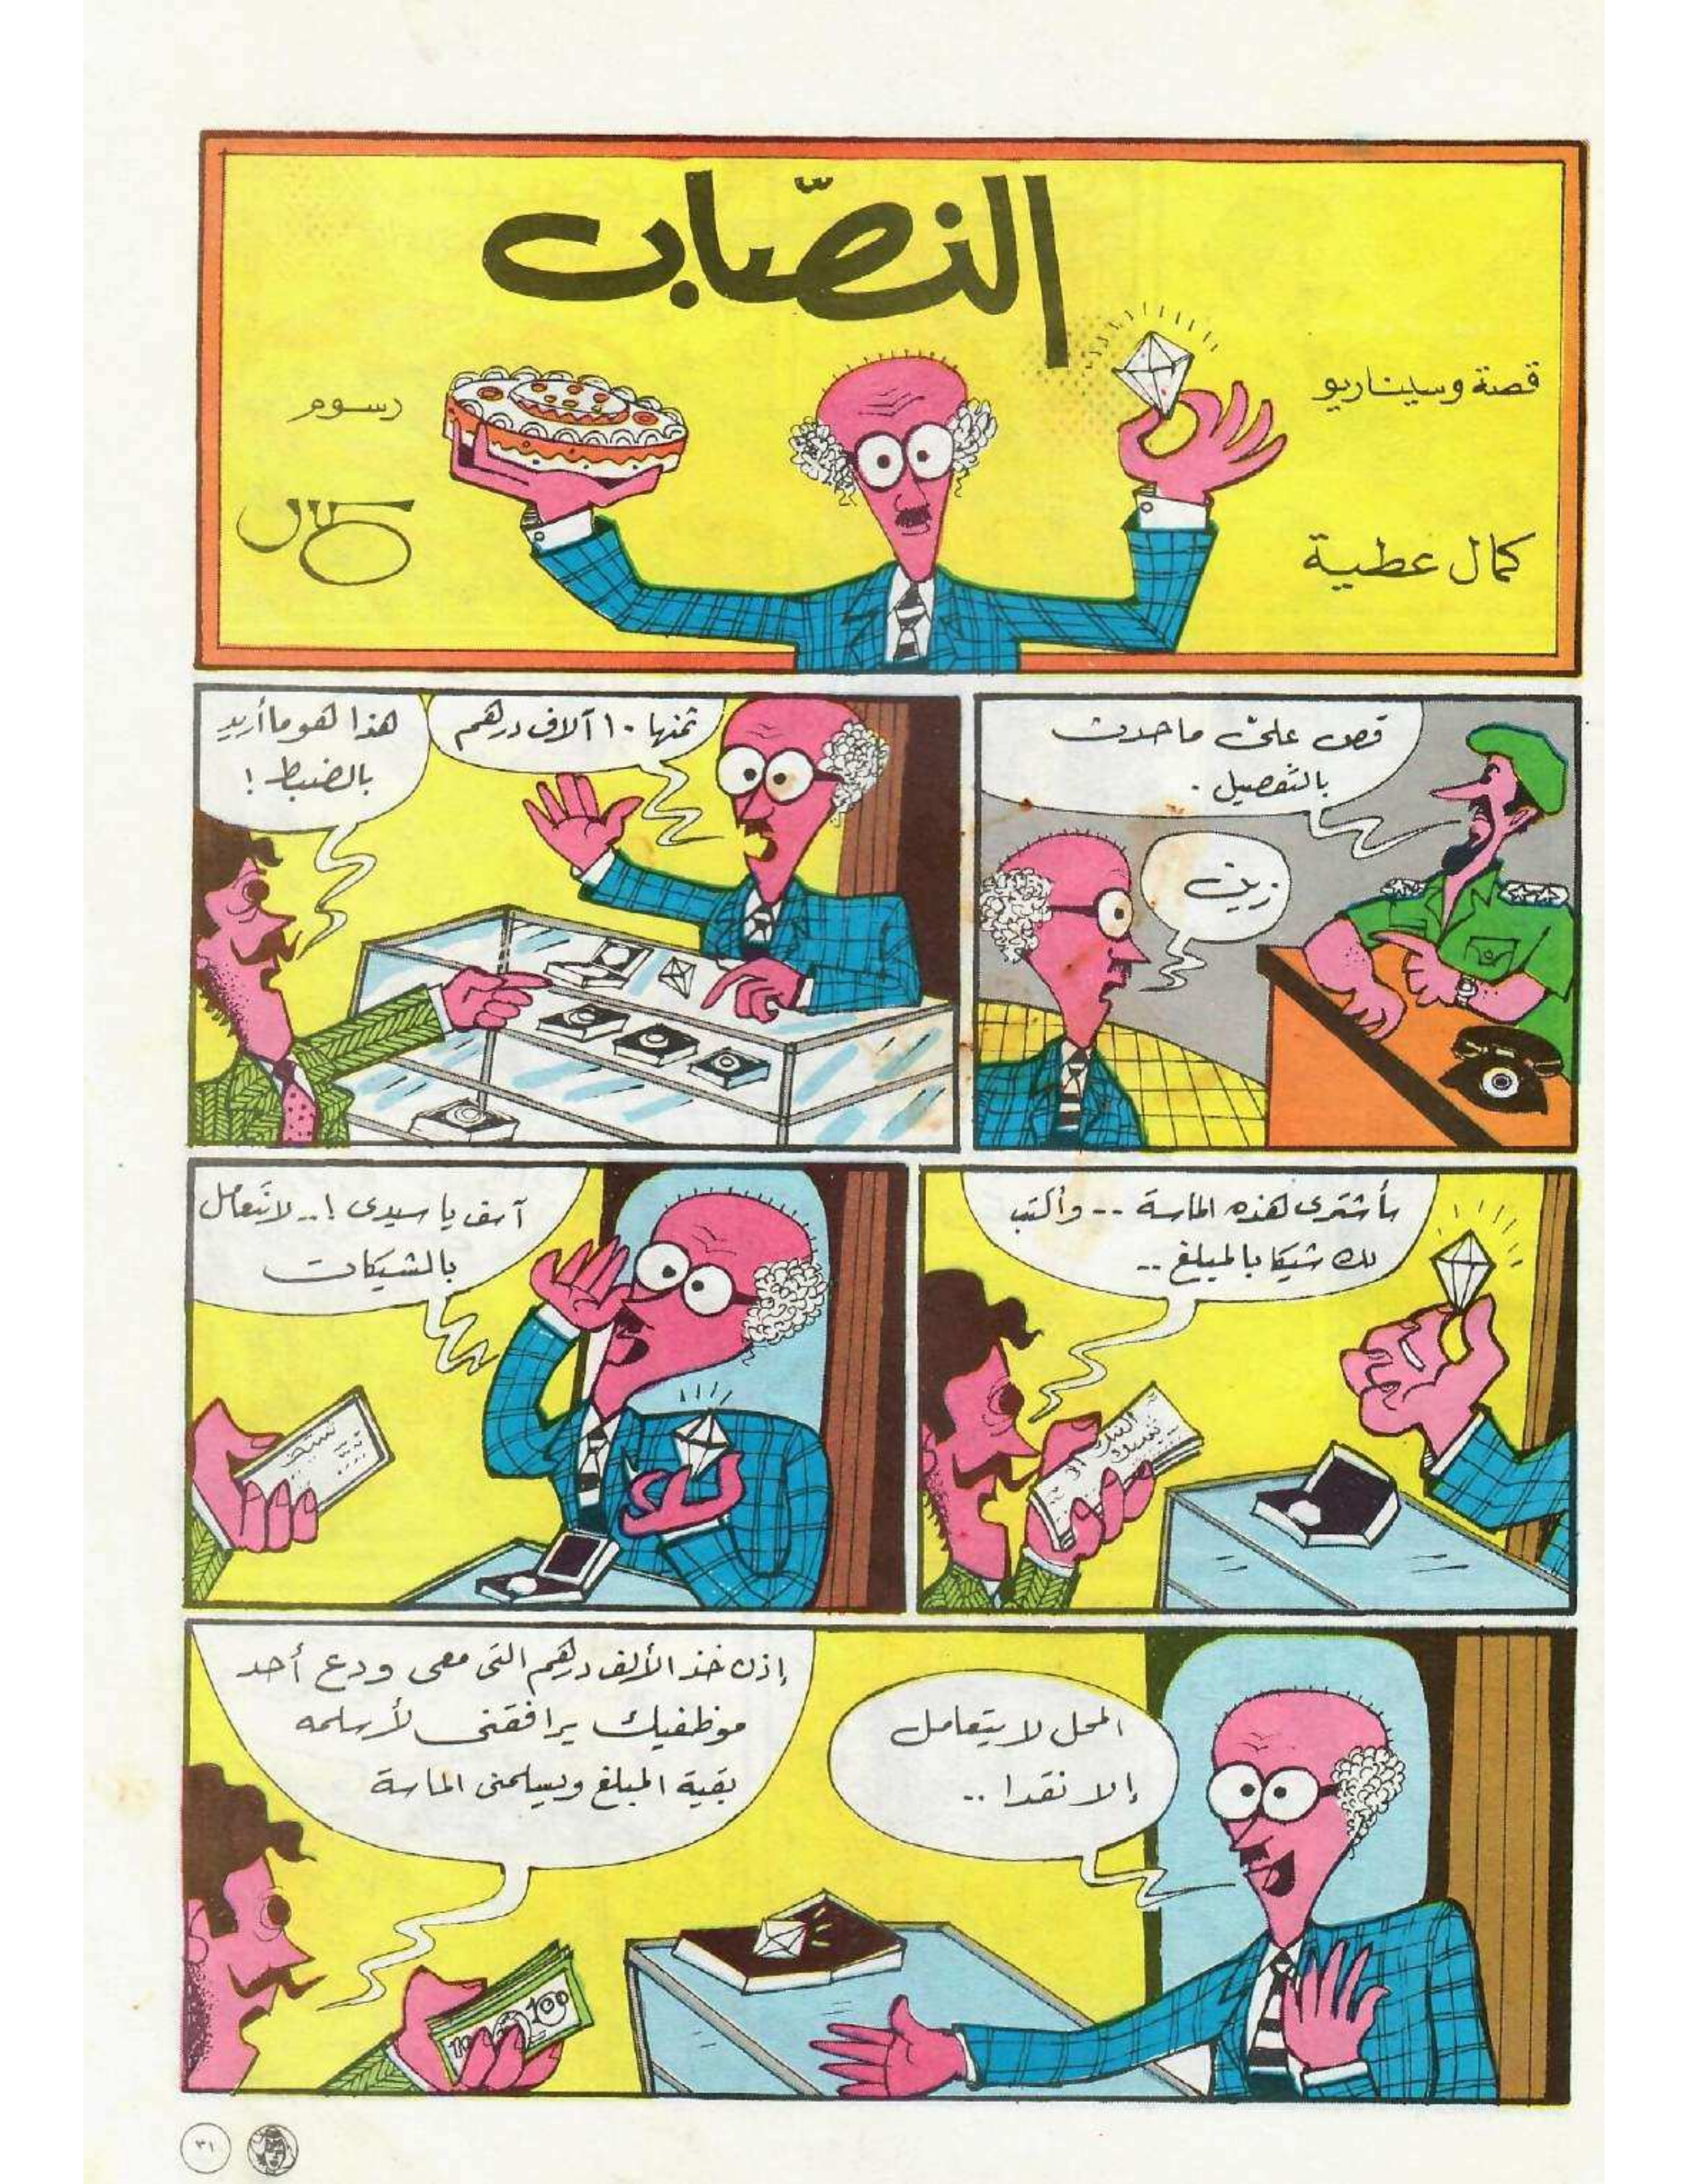 النصّاب
قصة وسيناريو
كمال عطية
رسوم
قص علىّ ما حدث
بالتفصيل .
زين
ثمنها ١٠ آلاف درهم
هذا هو ما أريد
بالضبط !
سأشترى هذه الماسة -- وأكتب
لك شيكا بالمبلغ --
آسف يا سيدى !.. لا نتعامل
بالشيكات
شيك
المحل لا يتعامل
إلا نقدا ..
إذن خذ الألف درهم التى معى ودع أحد
موظفيك يرافقنى لأسلمه
بقية المبلغ ويسلمنى الماسة
100
٣١